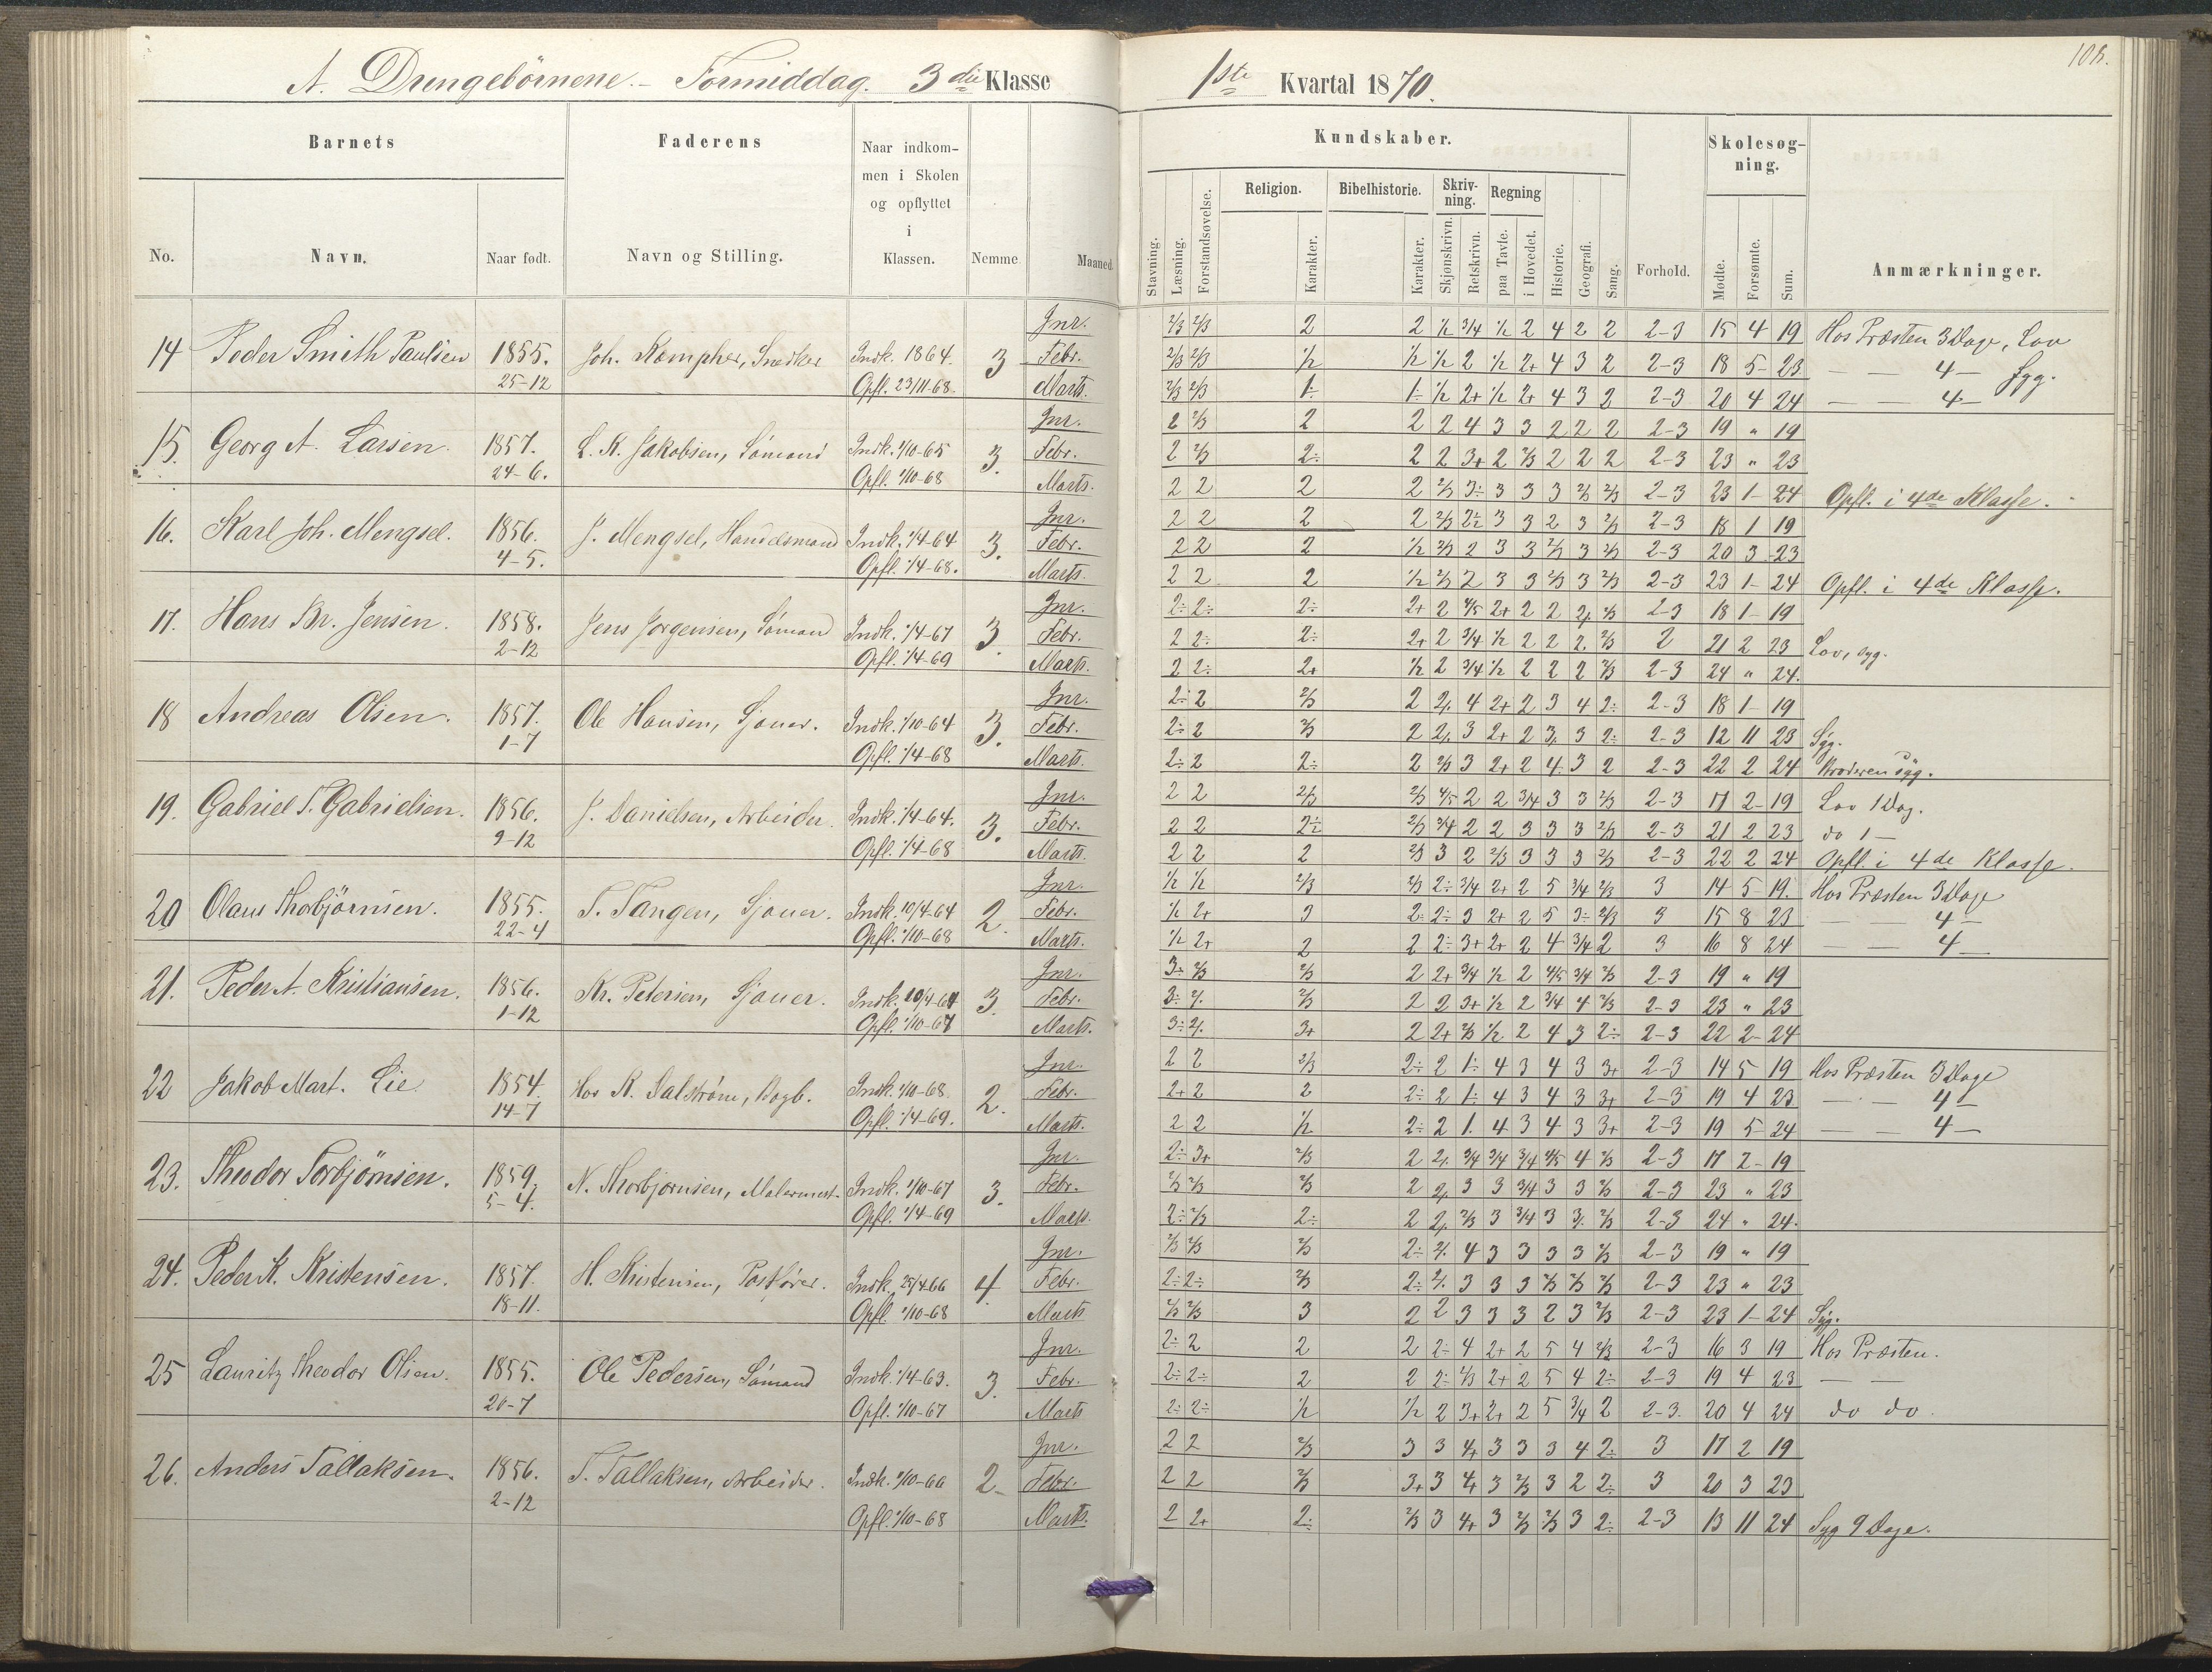 A. Drengebörnene.- Formiddag. 3die Klasse
1ste Kvartal 1870.
Barnets
Faderens
Naar indkom-
men i Skolen
og opflyttet
i
Klassen.
No. Navn. Naar født. Navn og Stilling. Nemme. Maaned.
Kundskaber.
Skolesøg-
ning.
Religion. Bibelhistorie. Skriv-
ning. Regning
Stavning. Læsning. Forstandsøvelse. Karakter. Karakter. Skjønskrivn. Retskrivn. paa Tavle. i Hovedet. Historie. Geografi. Sang. Forhold. Mødte. Forsømte. Sum. Anmærkninger.
Jnr. 2/3 2/3 2 2 1/2 3/4 1/2 2 4 2 2 2-3 15 4 19 Hos Præsten 3 Dage, Lov
14 Peder Smith Paulsen 1855. Joh. Kompher, Snedker Indk. 1864. 3 Febr. 2/3 2/3 1/2 1/2 1/2 2 1/2 2+ 4 3 2 2-3 18 5 23 — — 4 — Syg.
25-12 Opfl. 23/11-68. Marts. 2/3 2/3 1÷ 1÷ 1/2 2+ 1/2 2+ 4 3 2 2-3 20 4 24 — — 4 —
Jnr. 2 2/3 2 2 2 4 3 3 2 2 2 2-3 19 " 19
15. Georg A. Larsen. 1857. L. K. Jakobsen, Sömand Indk. 1/10-65 3. Febr. 2 2/3 2÷ 2 2 3+ 2 2/3 2 2 2 2-3 23 " 23
24-6. Opfl. 1/10-68 Marts. 2 2 2 2 2/3 3÷ 3 3 3 2/3 2/3 2-3 23 1 24 Opfl. i 4de Klasse.
Jnr. 2 2 2 2 2/3 2÷ 3 3 2 3 2/3 2-3 18 1 19
16. Karl Joh. Mengsel. 1856. J. Mengsel, Handelsmand Indk. 1/4-64 3. Febr. 2 2 2 1/2 2/3 2 3 3 2/3 3 2/3 2-3 20 3 23
4-5. Opfl. 1/4-68. Marts. 2 2 2 1/2 2/3 2 3 3 2/3 3 2/3 2-3 23 1 24 Opfl. i 4de Klasse.
Jnr. 2÷ 2÷ 2÷ 2+ 2 4/5 2+ 2 2 2/. 2/3 2-3 18 1 19
17. Hans Br. Jensen. 1858. Jens Jorgensen, Sömand Indk. 1/4-67 3. Febr. 2 2÷ 2÷ 2+ 2 3/4 1/2 2 2 2. 2/3 2 21 2 23 Lov, syg.
2-12 Opfl. 1/4-69 Marts. 2 2÷ 2+ 1/2 2 3/4 1/2 2 2 2 2/3 2-3 24 " 24.
Jnr. 2÷ 2 2/3 2 2/. 4 2+ 2 3 4 2÷ 2-3 18 1 19
18 Andreas Olsen. 1857. Ole Hansen, Sjouer. Indk. 1/10-64 3. Febr. 2÷ 2 2/3 2 2/. 3 2+ 2 3/. 3 2÷ 2-3 12 11 23 Syg.
1-7 Opfl. 1/4-68 Marts. 2÷ 2 2÷ 2 2/3 3 2+ 2 4 3 2 2-3 22 2 24 Broderen syg.
Jnr. 2 2 2/3 2/3 4/5 2 2 3/4 3 3 2/3 2-3 17 2 19 Lov 1 Dag.
19. Gabriel T. Gabrielsen. 1856. J. Danielsen, Arbeider. Indk. 1/4-64. 3. Febr. 2 2 2÷ 2/3 3/4 2 2 3 3 3 2/3 2-3 21 2 23 do 1 —
9-12 Opfl. 1/4-68 Marts. 2 2 2 2/3 3 2 2/3 3 3 3 2/3 2-3 22 2 24 Opfl. i 4de Klasse.
Jnr. 1/2 1/2 2/3 2/3 2÷ 3/4 2+ 2 5 3/4 2/3 3 14 5 19. Hos Præsten 3 Dage
20 Olaus Thorbjörnsen. 1855. T. Tangen, Sjouer. Indk. 10/4-64 2. Febr. 1/2 2+ 3 2÷ 2÷ 3 2+ 2 5 3÷ 2/3 3 15 8 23 — 4 —
22-4 Opfl. 1/10-68 Marts. 1/2 2+ 2 2 2÷ 3+ 2+ 2 4 3/4 2 3 16 8 24 — — 4 —
Jnr. 3+ 2/3 2/3 2 2+ 3/4 1/2 2 4/5 3/4 2/3 2-3 19 " 19
21. Peder A. Kristiansen. 1856. Kr. Petersen, Sjouer. Indk. 10/4-64 3. Febr. 3÷ 2/. 2/3 2 2 3+ 1/2 2 3/4 4 2/3 2-3 23 " 23
1-12 Opfl. 1/10-67 Marts. 3÷ 2/. 3+ 2 2+ 2/3 1/2 2 4 3 2÷ 2-3 22 2 24
Jnr. 2 2 2/3 2÷ 2 1÷ 4 3 4 3 3+ 2-3 14 5 19 Hos Præsten 3 Dage
22 Jakob Mart. Lie 1854. Hos K. Salström, Bogb. Indk. 1/10-68. 2. Febr. 2+ 2 2 2÷ 2 1÷ 4 3 4 3 3+ 2-3 19 4 23 — — 4 —
14-7 Opfl. 1/4-69. Marts. 2 2 1/2 2÷ 2 1. 4 3 4 3 3+ 2-3 19 5 24 — — 4 —
Jnr. 2÷ 3+ 2/3 2 2/. 3/4 3/4 3/4 4/5 4 2/3 2-3 17 2 19
23. Theodor Torbjörnsen. 1859. N. Thorbjornsen, Malermest. Indk. 1/10-67 3. Febr. 2/3 2/3 2/3 2 2/. 3 3 3/4 3 3 2/3 2-3 23 " 23
5-4. Opfl. 1/4-69 Marts. 2÷ 2/3 2÷ 2 2/. 2/3 3 3/4 3 3/. 2/3 2-3 24 " 24.
Jnr. 2/3 2/3 2/3 2÷ 2/. 4 3 3 3 3 2/3 2-3 19 " 19
24. Peder K. Kristensen. 1857. H. Kristensen, Postfører. Indk. 25/4-66 4. Febr. 2÷ 2÷ 2/3 2÷ 2/. 3 3 3 2/3 2/3 2/3 2-3 23 " 23
18-11. Opfl. 1/10-68 Marts 2/3 2/3 3 2 2 3 3 3 2 3 2/3 2-3 23 1 24 Syg.
Jnr. 2÷ 2 2 2 2÷ 4 2+ 2 5 4 2/3 2-3 16 3 19 Hos Præsten.
25 Lauritz Theodor Olsen. 1855. Ole Pedersen, Sömand Indk. 1/4-63. 3. Febr. 2÷ 2÷ 2 2 2÷ 4/3 2+ 2 5 4 2÷ 2-3 19 4 23 — —
20-7 Opfl. 1/10-67 Marts 2÷ 2÷ 1/2 1/2 2 3+ 2+ 2 5 3/4 2 2-3. 20 4 24 do do.
Jnr. 2 2 2/3 3 3 4+ 3 3 3 4 2÷ 3 17 2 19
26. Anders Tallaksen. 1856. T. Tallaksen, Arbeider. Indk. 1/10-66 2. Febr. 2 2 2/3 3+ 3 4+ 3 2/3 3 2 2÷ 3 20 3 23
2-12 Opfl. 1/10-68 Marts. 2 2+ 2÷ 2/3 3 4+ 3 2/3 2/3 3 2÷ 2-3 13 11 24 Syg 9 Dage.